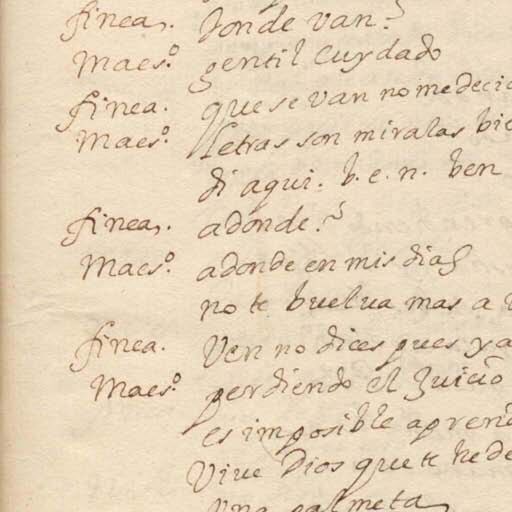 finea. donde van?
Maes.º gentil cuydado
finea. que se van no me decia
Maes.º letras son miralas bie
di aqui. b. e. n. ben
finea. adonde?
Maes.º adonde en mis dias
no te buelua mas a
finea. Ven no dices pues ya
Maes.º perdiendo el Juicio
es imposible apren
Viue Dios que te he de
Una palmeta